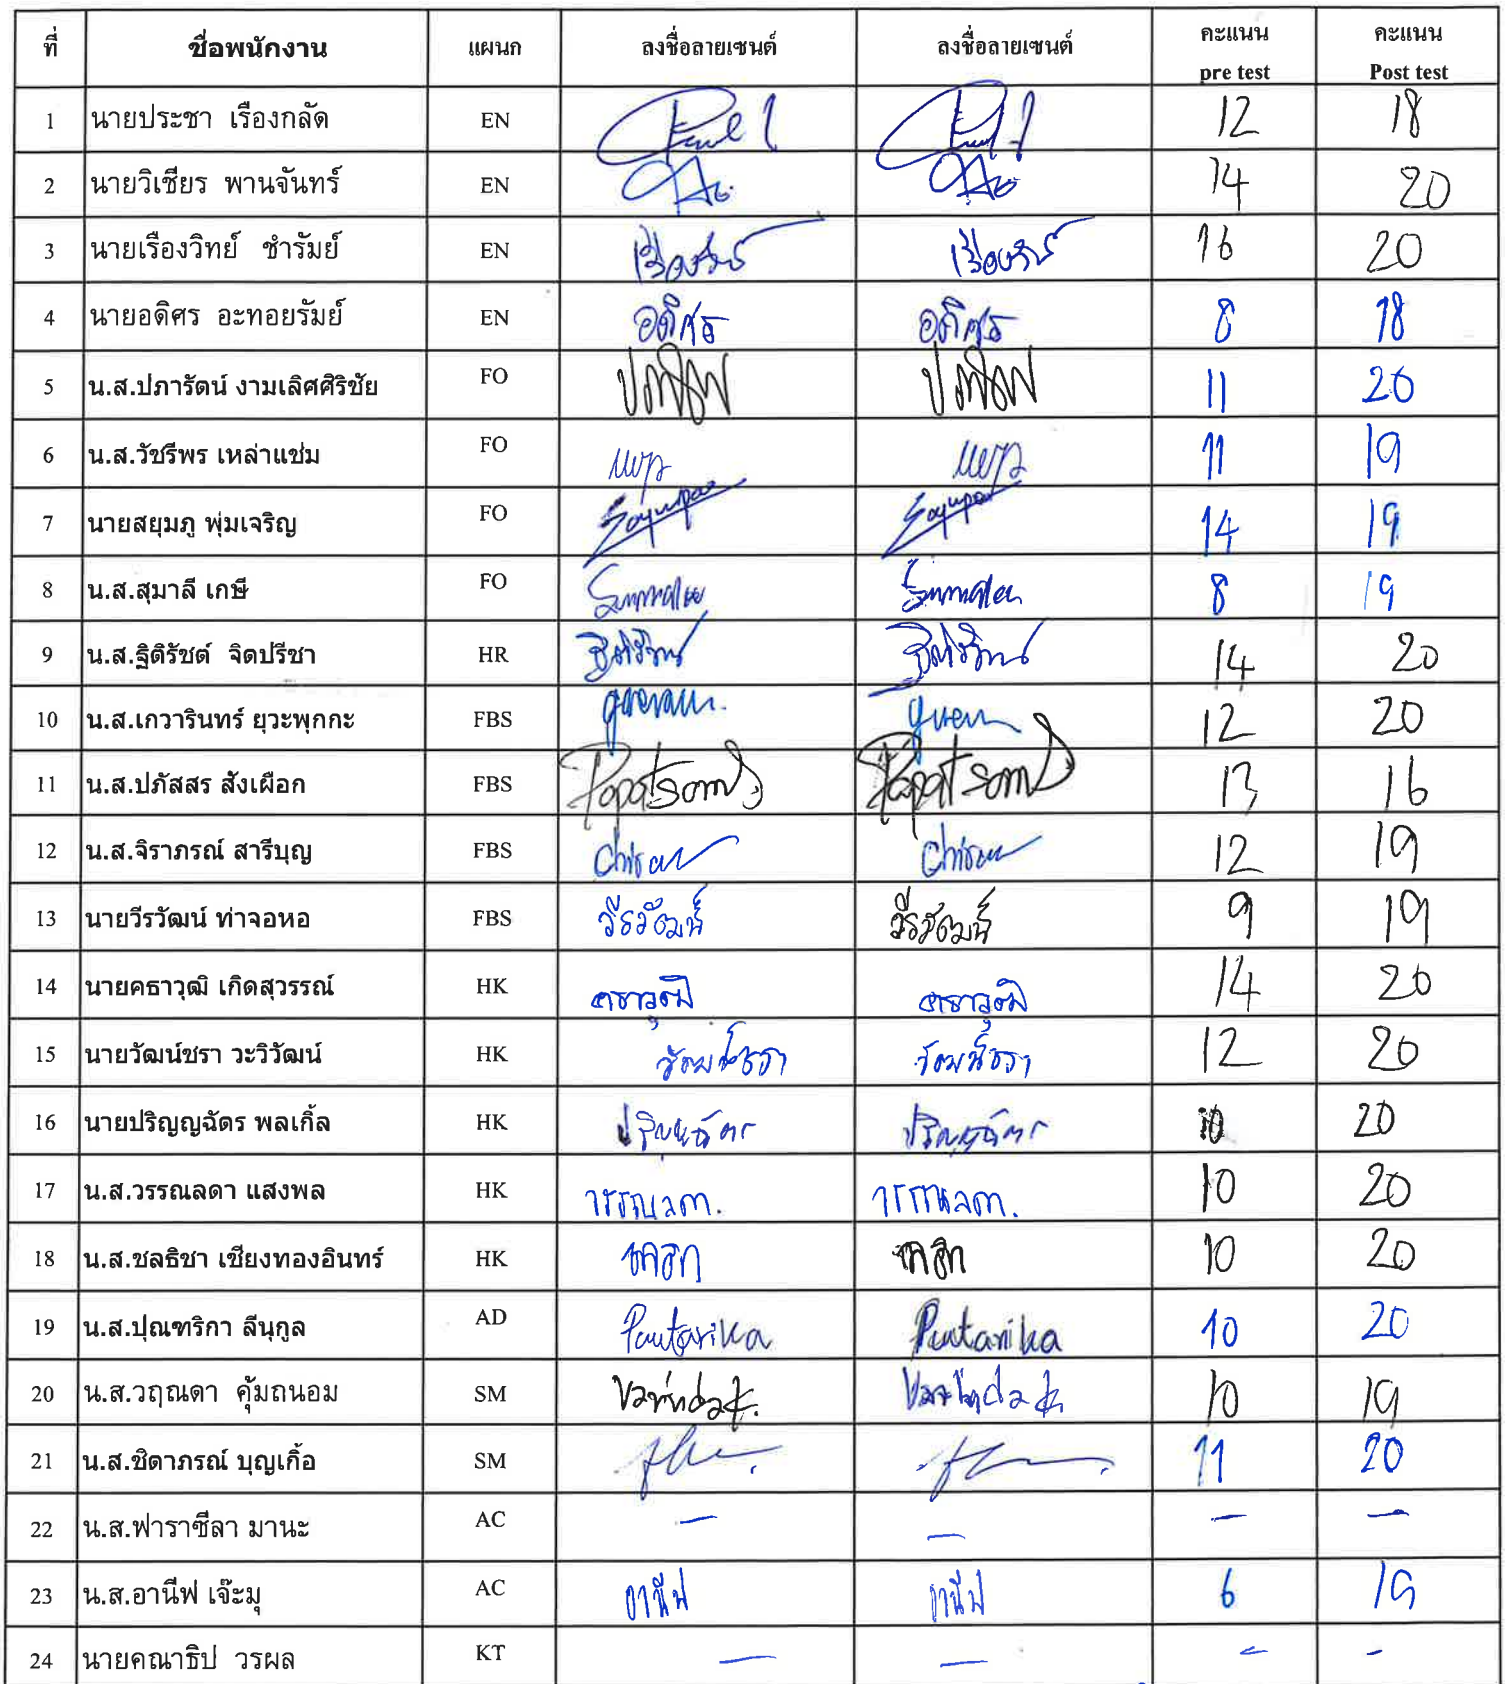 ที่ ชื่อพนักงาน แผนก ลงชื่อลายเซนต์ ลงชื่อลายเซนต์ คะแนน pre test คะแนน Post test
1 นายประชา เรืองกลัด EN 12 18
2 นายวิเชียร พานจันทร์ EN 14 20
3 นายเรืองวิทย์ ชำรัมย์ EN 16 20
4 นายอดิศร อะทอยรัมย์ EN อดิศร อดิศร 8 18
5 น.ส.ปภารัตน์ งามเลิศศิริชัย FO 11 20
6 น.ส.วัชรีพร เหล่าแช่ม FO 11 19
7 นายสยุมภู พุ่มเจริญ FO 14 19
8 น.ส.สุมาลี เกษี FO 8 19
9 น.ส.ฐิติรัชต์ จิตปรีชา HR 14 20
10 น.ส.เกวารินทร์ ยุวะพุกกะ FBS 12 20
11 น.ส.ปภัสสร สังเผือก FBS 13 16
12 น.ส.จิราภรณ์ สารีบุญ FBS 12 19
13 นายวีรวัฒน์ ท่าจอหอ FBS วีรวัฒน์ วีรวัฒน์ 9 19
14 นายคธาวุฒิ เกิดสุวรรณ์ HK คธาวุฒิ คธาวุฒิ 14 20
15 นายวัฒน์ชรา วะวิวัฒน์ HK วัฒน์ชรา วัฒน์ชรา 12 20
16 นายปริญญฉัตร พลเกิ้ล HK ปริญญฉัตร ปริญญฉัตร 10 20
17 น.ส.วรรณลดา แสงพล HK วรรณลดา. วรรณลดา. 10 20
18 น.ส.ชลธิชา เชียงทองอินทร์ HK 10 20
19 น.ส.ปุณฑริกา ลีนุกูล AD Puntarika Puntarika 10 20
20 น.ส.วฤณดา คุ้มถนอม SM 10 19
21 น.ส.ชิดาภรณ์ บุญเกิ้อ SM 11 20
22 น.ส.ฟาราซีลา มานะ AC – – – –
23 น.ส.อานีฟ เจ๊ะมุ AC อานีฟ อานีฟ 6 19
24 นายคณาธิป วรผล KT – – – –